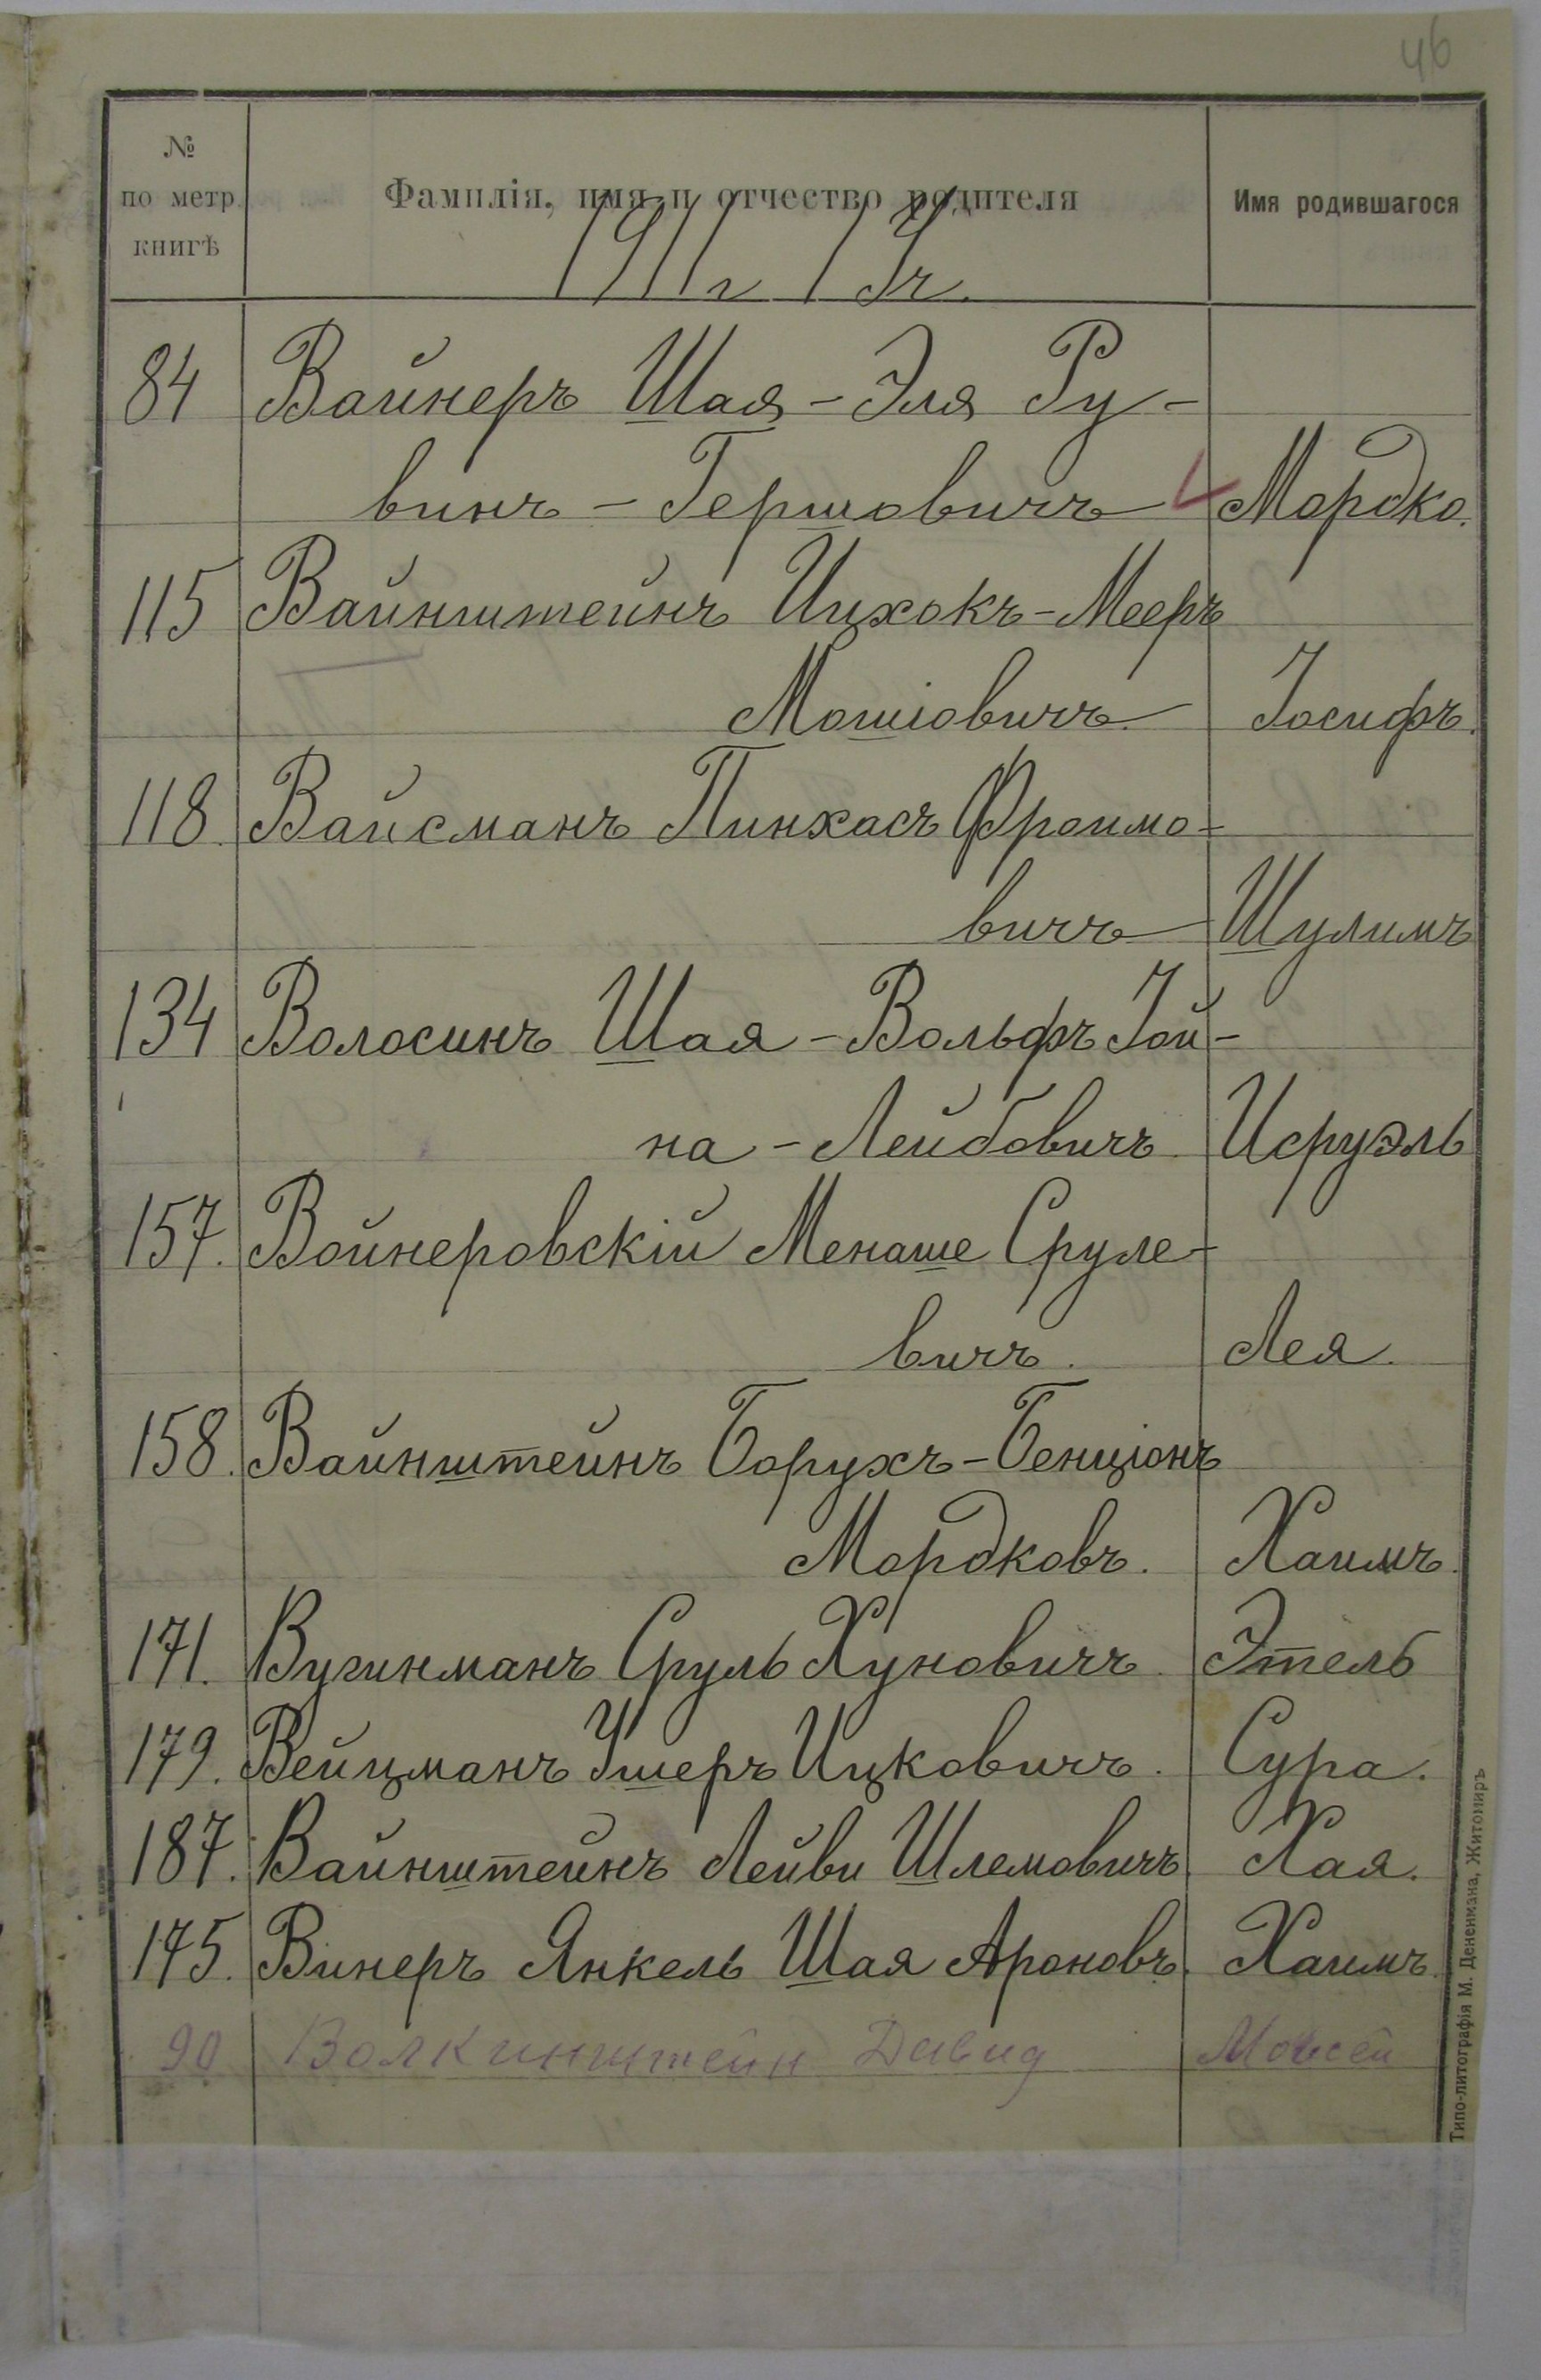 46
№
по метр.
книгѣ
Фамилія, имя и отчество родителя
Имя родившагося
1911 г I ч.
84 Вайнеръ Шая-Эля Ру-
винъ-Гершовичъ Мордко.
115 Вайнштейнъ Ицхокъ-Мееръ
Мошіовичъ. Іосифъ.
118. Вайсманъ Пинхасъ Фроимо-
вичъ Шулимъ
134 Волосинъ Шая-Вольфъ Іой-
на-Лейбовичъ. Исруэль
157. Войнеровскій Менаше Сруле-
вичъ. Лея.
158. Вайнштейнъ Борухъ-Бенціонъ
Мордковъ. Хаимъ.
171. Вугинманъ Сруль Хуновичъ. Этель
179. Вейцманъ Ушеръ Ицковичъ. Сура.
187. Вайнштейнъ Лейви Шлемовичъ. Хая.
175. Винеръ Янкель Шая Ароновъ. Хаимъ.
90 Волкинштейн Давид Мовсей
Типо-литографія М. Дененмана, Житомиръ